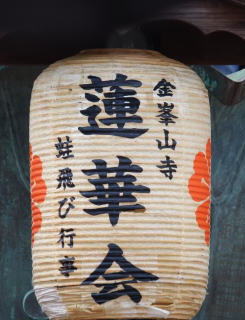 金峯山寺
蓮華会
蛙飛び行事